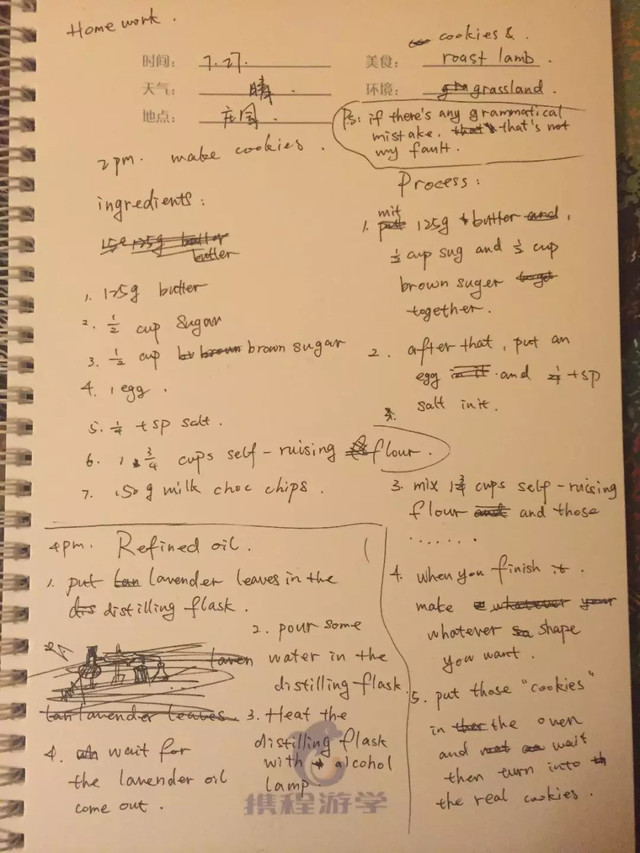 Home work.
时间： 7.27.
天气： 晴
地点： 庄园.
美食： cookies & roast lamb.
环境： grassland.
Ps: if there's any grammatical
mistake, that's not
my fault.
2 pm. make cookies.
ingredients:
butter
1. 125g butter
2. 1/2 cup sugar
3. 1/2 cup brown sugar
4. 1 egg.
5. 1/4 tsp salt.
6. 1 3/4 cups self-ruising flour.
7. 150g milk choc chips.
Process:
1. mit 125g butter,
1/2 cup sug and 1/2 cup
brown suger
together.
2. after that, put an
egg and 1/4 tsp
salt in it.
3. mix 1 3/4 cups self-ruising
flour and those
.......
4. when you finish.
make
whatever shape
you want.
5. put those "cookies"
in the oven
and wait
then turn into
the real cookies.
4 pm. Refined oil.
1. put lavender leaves in the
distilling flask.
2. pour some
water in the
distilling flask.
3. Heat the
distilling flask
with alcohol
lamp.
4. wait for
the lavender oil
come out.
携程游学